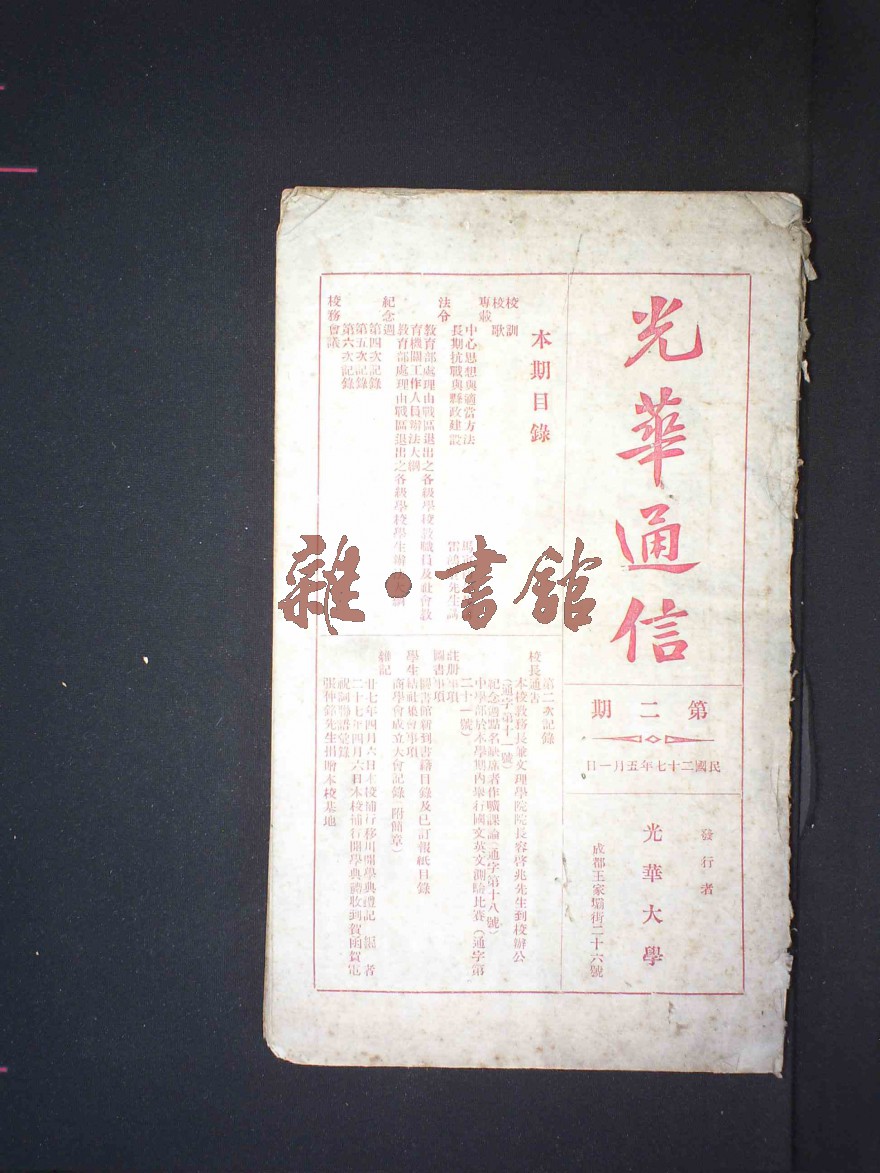 光華通信
第二期
民國二十七年五月一日
發行者
光華大學
成都王家壩街二十六號
本期目錄
校訓
校歌
專載
中心思想與適當方法
長期抗戰與縣政建設
先生講
法令
教育部處理由戰區退出之各級學校教職員及社會教
育機關工作人員辦法大綱
教育部處理由戰區退出之各級學校學生辦法大綱
紀念週
第四次記錄
第五次記錄
第六次記錄
校務會議
第二次記錄
校長通告
本校教務長兼文理學院院長容啓兆先生到校辦公
(通字第十一號)
紀念週點名缺席者作曠課論(通字第十八號)
中學部於本學期內舉行國文英文測驗比賽(通字第
二十一號)
註册事項
圖書事項
圖書館新到書籍目錄及已訂報紙目錄
學生結社集會事項
商學會成立大會記錄(附簡章)
雜記
廿七年四月六日本校補行移川開學典禮記 記者
二十七年四月六日本校補行開學典禮收到賀函賀電
祝詞聯語彙錄
張仲銘先生捐贈本校基地
雜·書館